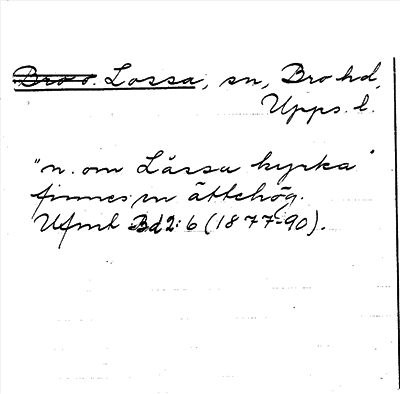 Bro o. Lossa, sn, Bro hd,
Upps. l.
"n. om Låssa kyrka"
finnes en ättehög.
Ufmt Bd 2: 6 (1877-90).